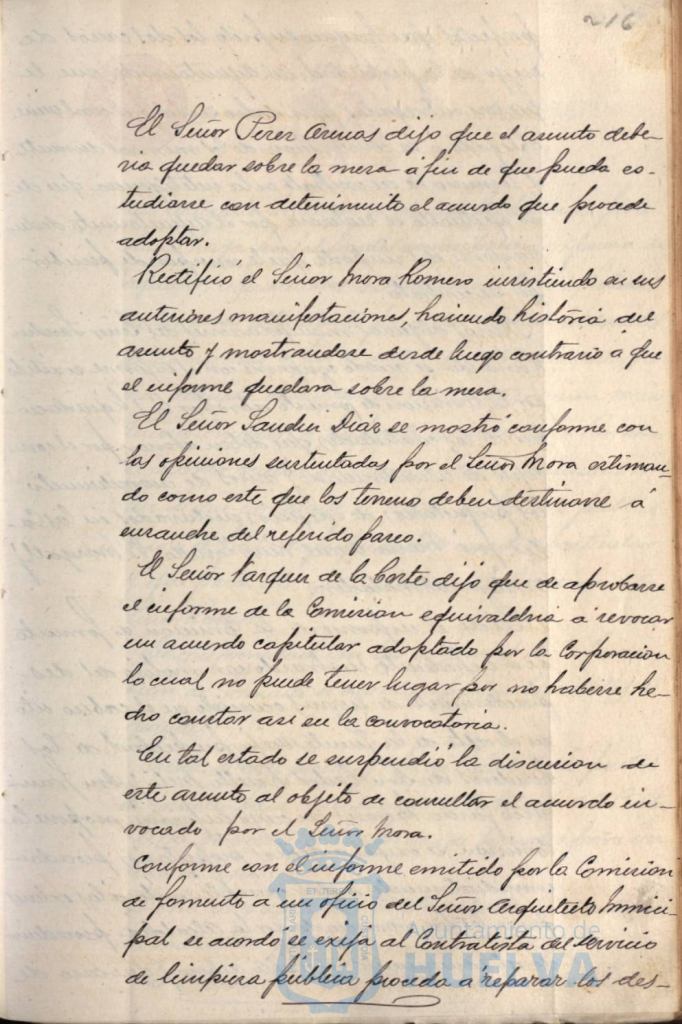 216
El Señor Perez Arenas dijo que el asunto debe-
ria quedar sobre la mesa á fin de que pueda es-
tudiarse con detenimiento el acuerdo que procede
adoptar.
Rectificó el Señor Mora Romero insistiendo en sus
anteriores manifestaciones, haciendo história del
asunto y mostrandose desde luego contrario á que
el informe quedara sobre la mesa.
El Señor Sanchez Diáz se mostró conforme con
las opiniones sustentadas por el Señor Mora estiman-
do como este que los terreno deben destinarse á
ensanche del referido paseo.
El Señor Vazquez de la Corte dijo que de aprobarse
el informe de la Comision equivaldria á revocar
un acuerdo capitular adoptado por la Corporacion
lo cual no puede tener lugar por no haberse he-
cho constar asi en la convocatoria.
En tal estado se suspendió la discusion de
este asunto al objeto de consultar el acuerdo in-
vocado por el Señor Mora.
Conforme con el informe emitido por la Comision
de fomento á un oficio del Señor Arquitecto Munici-
pal se acordó se exija al Contratista del servicio
de limpieza pública proceda á reparar los des-
Ayuntamiento de
HUELVA